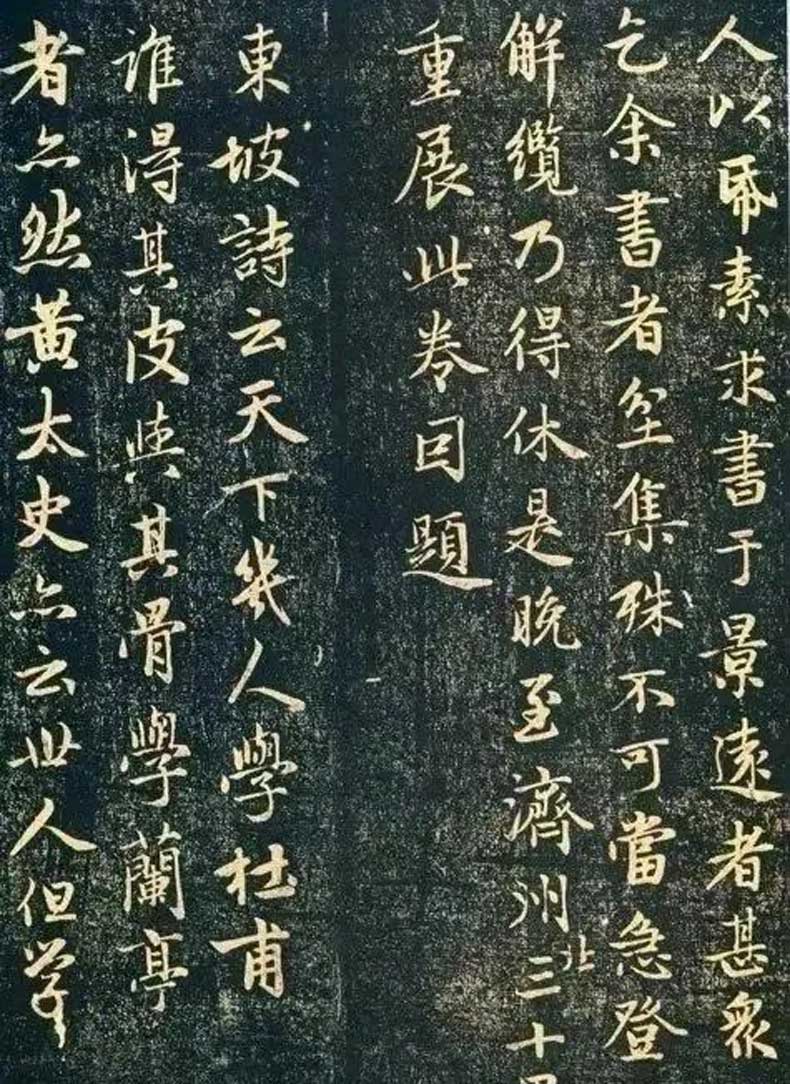 人以帋素求書于景遠者甚衆
乞余書者坌集殊不可當急登
解纜乃得休是晚至濟州北三十里
重展此卷因題
東坡詩云天下幾人學杜甫
誰得其皮與其骨學蘭亭
者亦然黃太史亦云世人但學